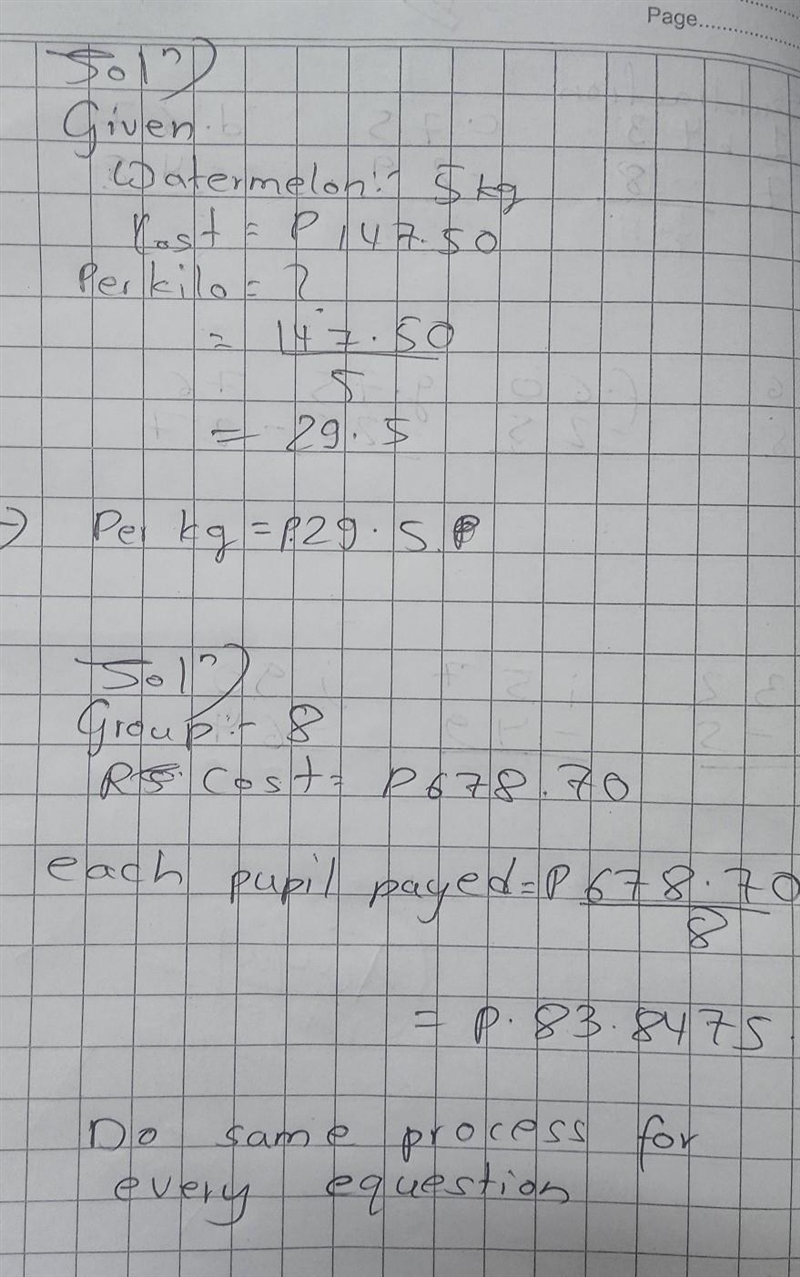 Page..............
Solⁿ)
Given.
Watermelon:- 5 kg
Cost = P 147.50
Per kilo = ?
= 147.50
5
= 29.5
→ Per kg = P.29.5
Solⁿ)
Group:- 8
Cost = P 678.70
each pupil payed = P 678.70
8
= P. 83.8475
Do same process for
every equestion